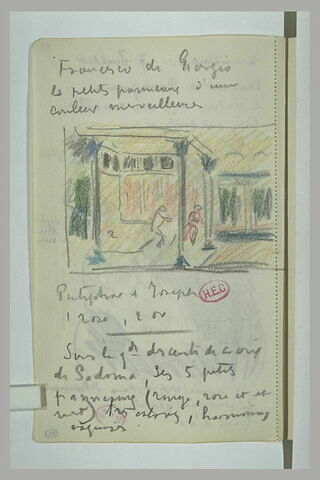 Francesco di Giorgio
le petits panneaux d'une
couleur merveilleuse
2
Putiphar e Joseph
H.E.C
1 rose, 2 or
Sous la gde descente de croix
de Sodoma, ses 5 petits
panneaux (rouge, rose et et
vert) très colorés, harmonies
exquises